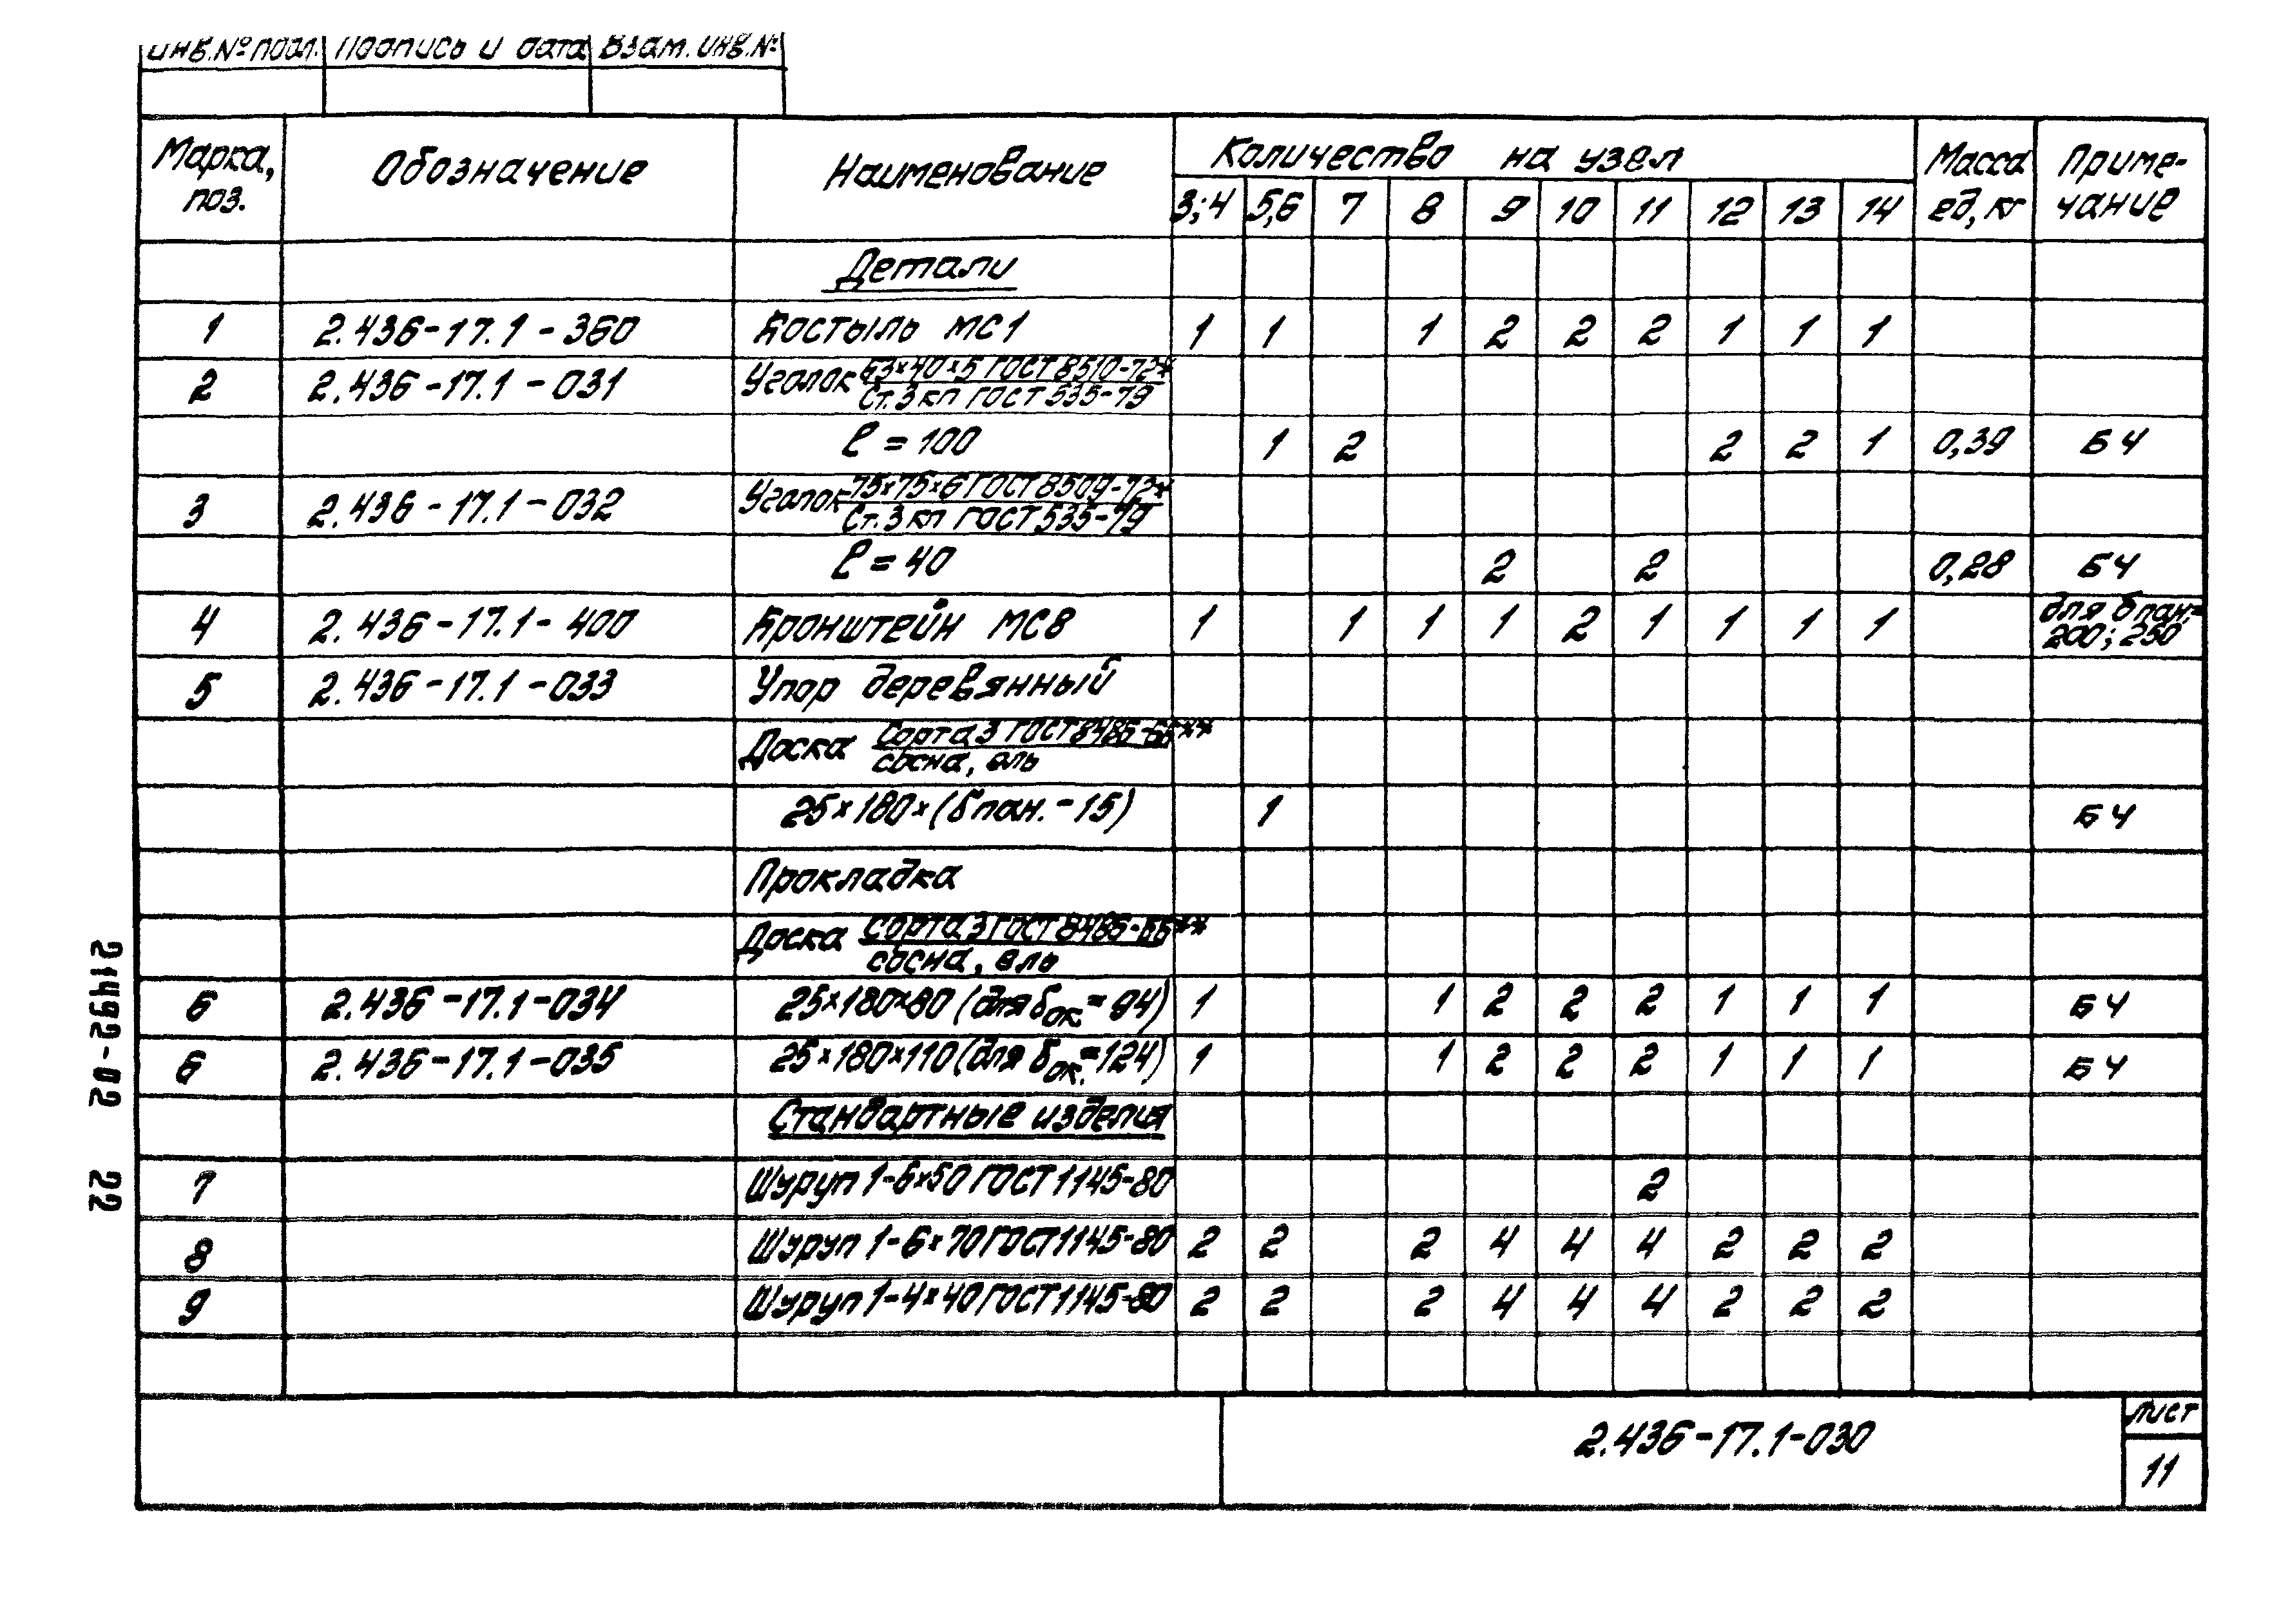 Инв.№ подл. Подпись и дата Взам. инв.№
Марка, поз. Обозначение Наименование Количество на узел Масса ед, кг Приме-чание
3;4 5,6 7 8 9 10 11 12 13 14
Детали
1 2.436-17.1-360 Костыль МС1 1 1 1 2 2 2 1 1 1
2 2.436-17.1-031 Уголок 63×40×5 ГОСТ 8510-72*
Ст.3 кп ГОСТ 535-79
ℓ = 100 1 2 2 2 1 0,39 БЧ
3 2.436-17.1-032 Уголок 75×75×6 ГОСТ 8509-72*
Ст.3 кп ГОСТ 535-79
ℓ = 40 2 2 0,28 БЧ
4 2.436-17.1-400 Кронштейн МС8 1 1 1 1 2 1 1 1 1 для δ пан.=
200; 250
5 2.436-17.1-033 Упор деревянный
Доска Сорта 3 ГОСТ 8486-66**
сосна, ель
25×180×(δ пан.-15) 1 БЧ
Прокладка
Доска Сорта 3 ГОСТ 8486-66**
сосна, ель
6 2.436-17.1-034 25×180×80 (для δок.=94) 1 1 2 2 2 1 1 1 БЧ
6 2.436-17.1-035 25×180×110 (для δок.=124) 1 1 2 2 2 1 1 1 БЧ
Стандартные изделия
7 Шуруп 1-6×50 ГОСТ 1145-80 2
8 Шуруп 1-6×70 ГОСТ 1145-80 2 2 2 4 4 4 2 2 2
9 Шуруп 1-4×40 ГОСТ 1145-80 2 2 2 4 4 4 2 2 2
2.436-17.1-030
Лист
11
21492-02 22